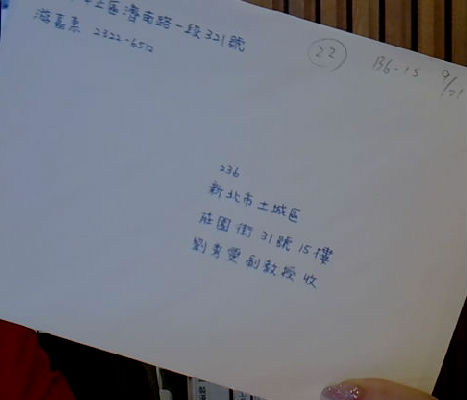 中正區濟南路一段321號
2322-65
22
B6-15
236
新北市土城區
莊園街31號15樓
劉秀雯副教授 收